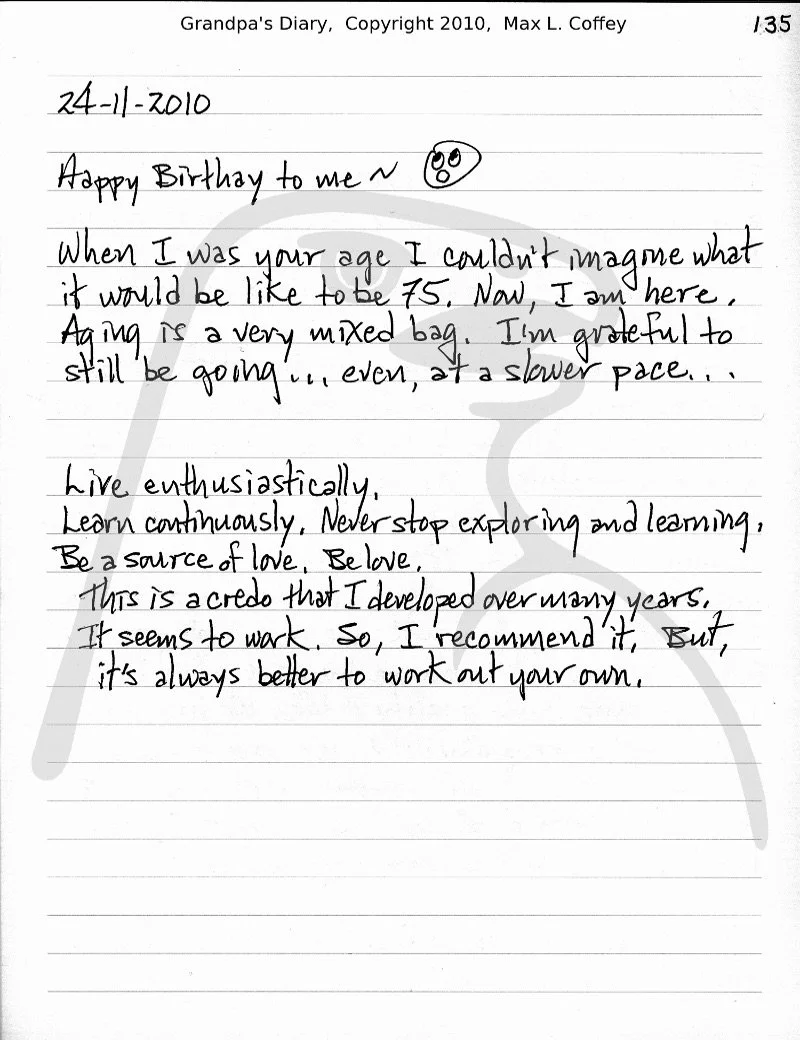 Grandpa's Diary, Copyright 2010, Max L. Coffey 135
24-11-2010
Happy Birthay to me ~
When I was your age I couldn't imagine what
it would be like to be 75. Now, I am here.
Aging is a very mixed bag. I'm grateful to
still be going... even, at a slower pace...
Live enthusiastically.
Learn continuously. Never stop exploring and learning.
Be a source of love. Be love.
This is a credo that I developed over many years.
It seems to work. So, I recommend it. But,
it's always better to work out your own.